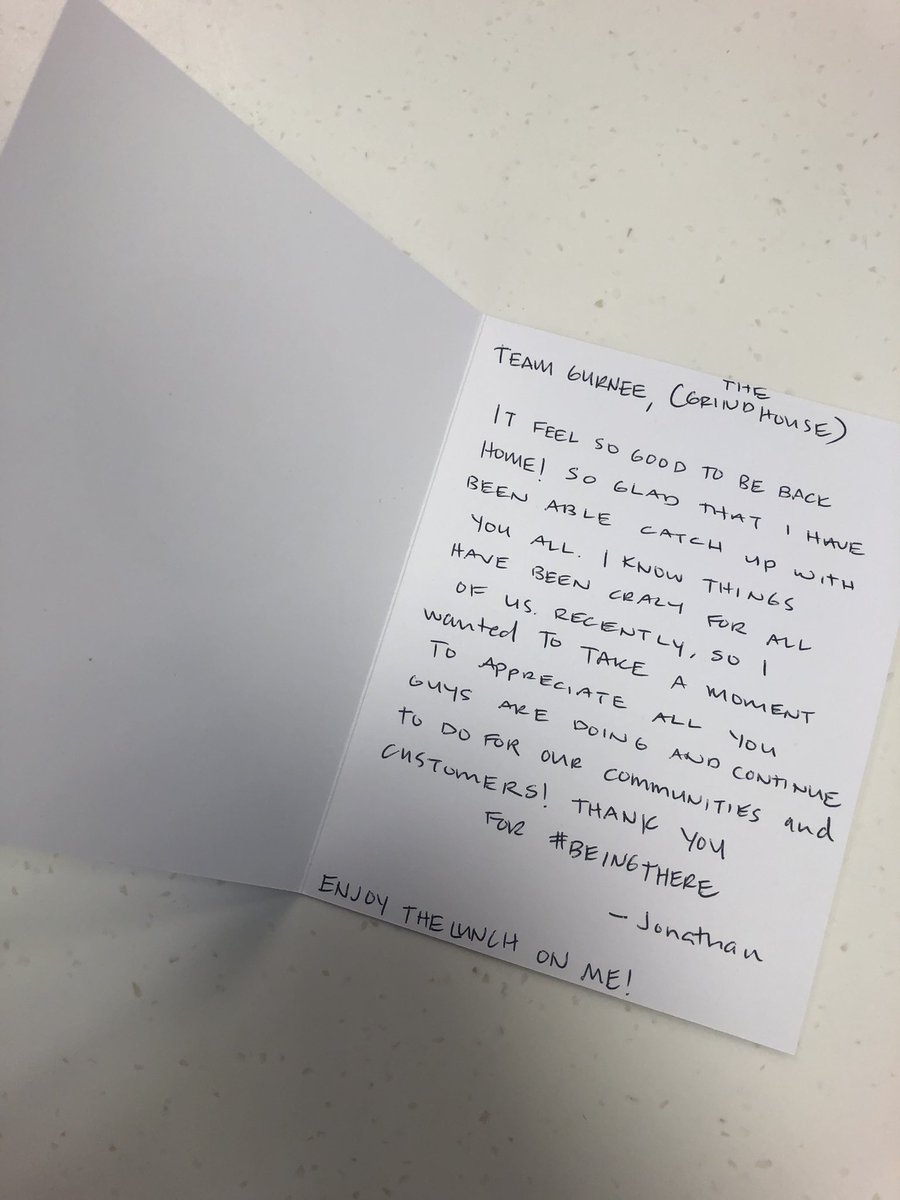 TEAM GURNEE, (THE GRINDHOUSE)
IT FEEL SO GOOD TO BE BACK
HOME! SO GLAD THAT I HAVE
BEEN ABLE CATCH UP WITH
YOU ALL. I KNOW THINGS
HAVE BEEN CRAZY FOR ALL
OF US. RECENTLY, SO I
wanted TO TAKE A MOMENT
TO APPRECIATE ALL YOU
GUYS ARE DOING AND CONTINUE
TO DO FOR OUR COMMUNITIES and
CUSTOMERS! THANK YOU
FOR #BEINGTHERE
- Jonathan
ENJOY THE LUNCH ON ME!